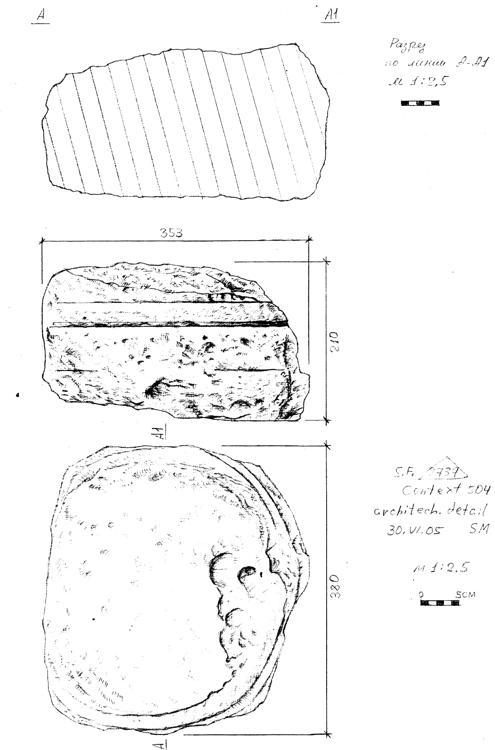 A A1
Разрез
по линии А-А1
м 1:2,5
353
210
A1
S.F. 737
Context 504
architech. detail
30.VI.05 SM
380
м 1:2,5
0 5CM
A